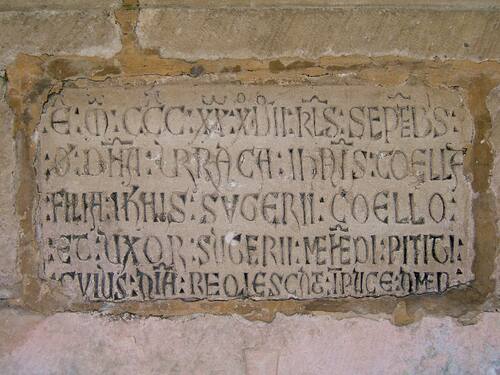 E : M : CCC : XX : XVII : KLS : SEPEBS :
O : DNA : URRACA : IHNIS : COELLA
FILIA : IHNIS : SUGERII : COELLO :
ET : UXOR : SUGERII : MENEDI : PITITI :
CVIUS : NIA : REQIESCNT : I PACE : AMEN